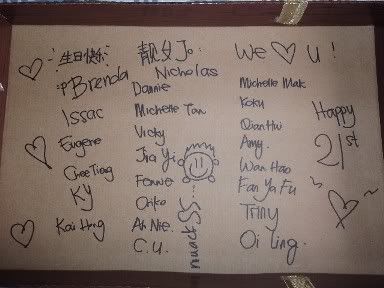 生日快乐
靓女Jo:
We ♡ u!
Brenda
Issac
Eugene
Chee Tieng
KY
Kai Hng
Nicholas
Dannie
Michelle Tan
Vicky
Jia Yi
Fennie
Ah Nie.
C.U.
Michelle Mak
Koku
Qian Hui
Amy.
Wan Hao
Fan Ya Fu
Triny
Oi Ling.
Happy
21st